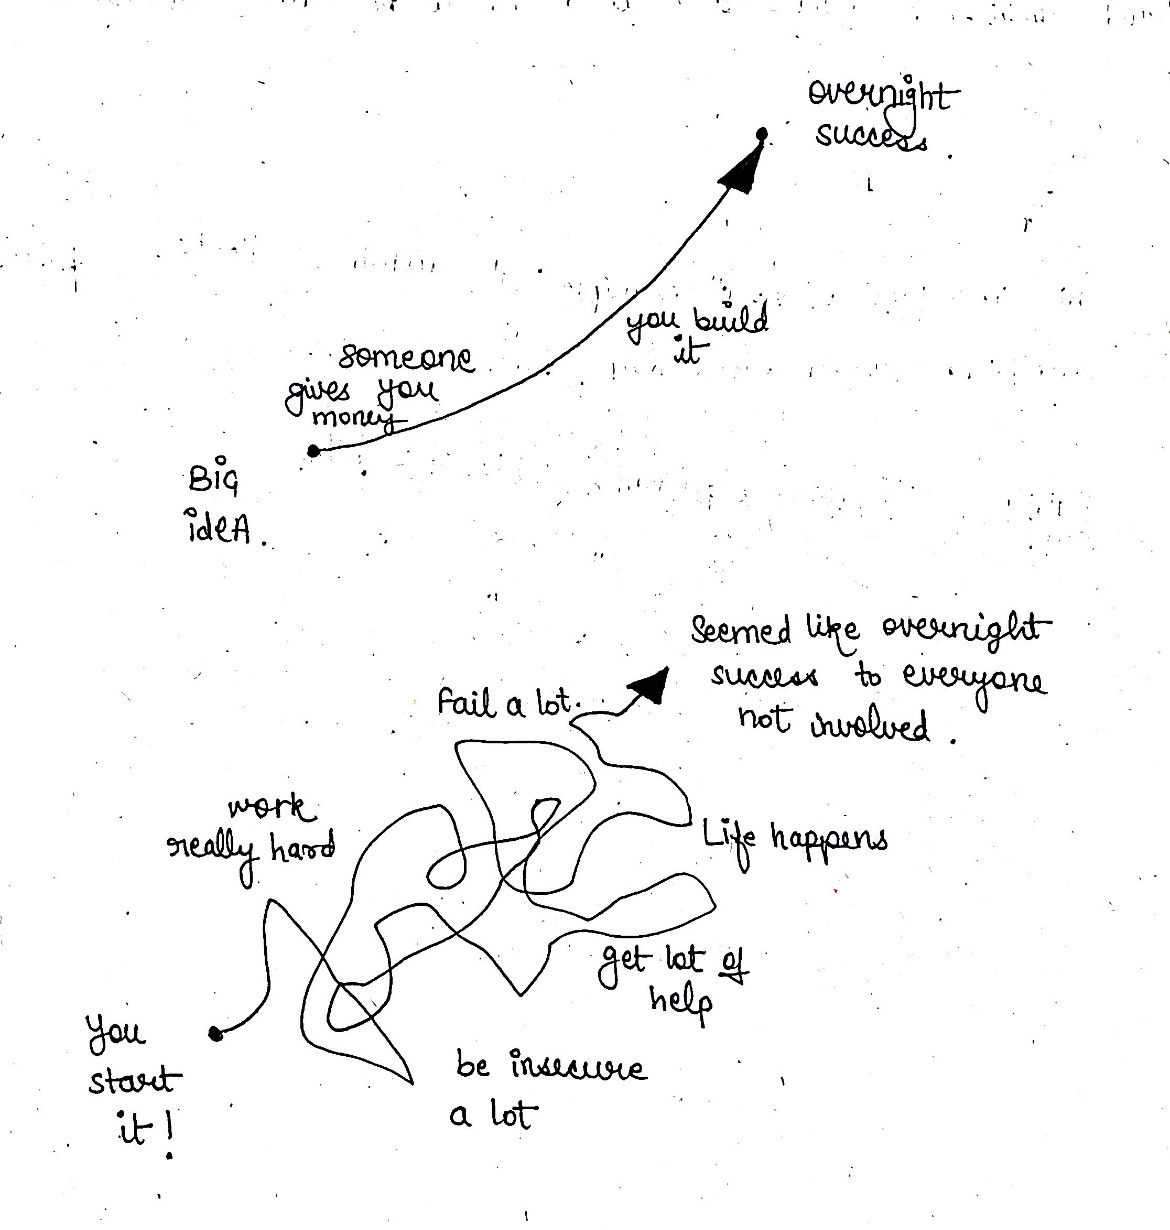 overnight
success.
you build
it
someone
gives you
money
Big
ideA.
Seemed like overnight
success to everyone
not involved.
Fail a lot.
work
really hard
Life happens
get lot of
help
You
start
it!
be insecure
a lot